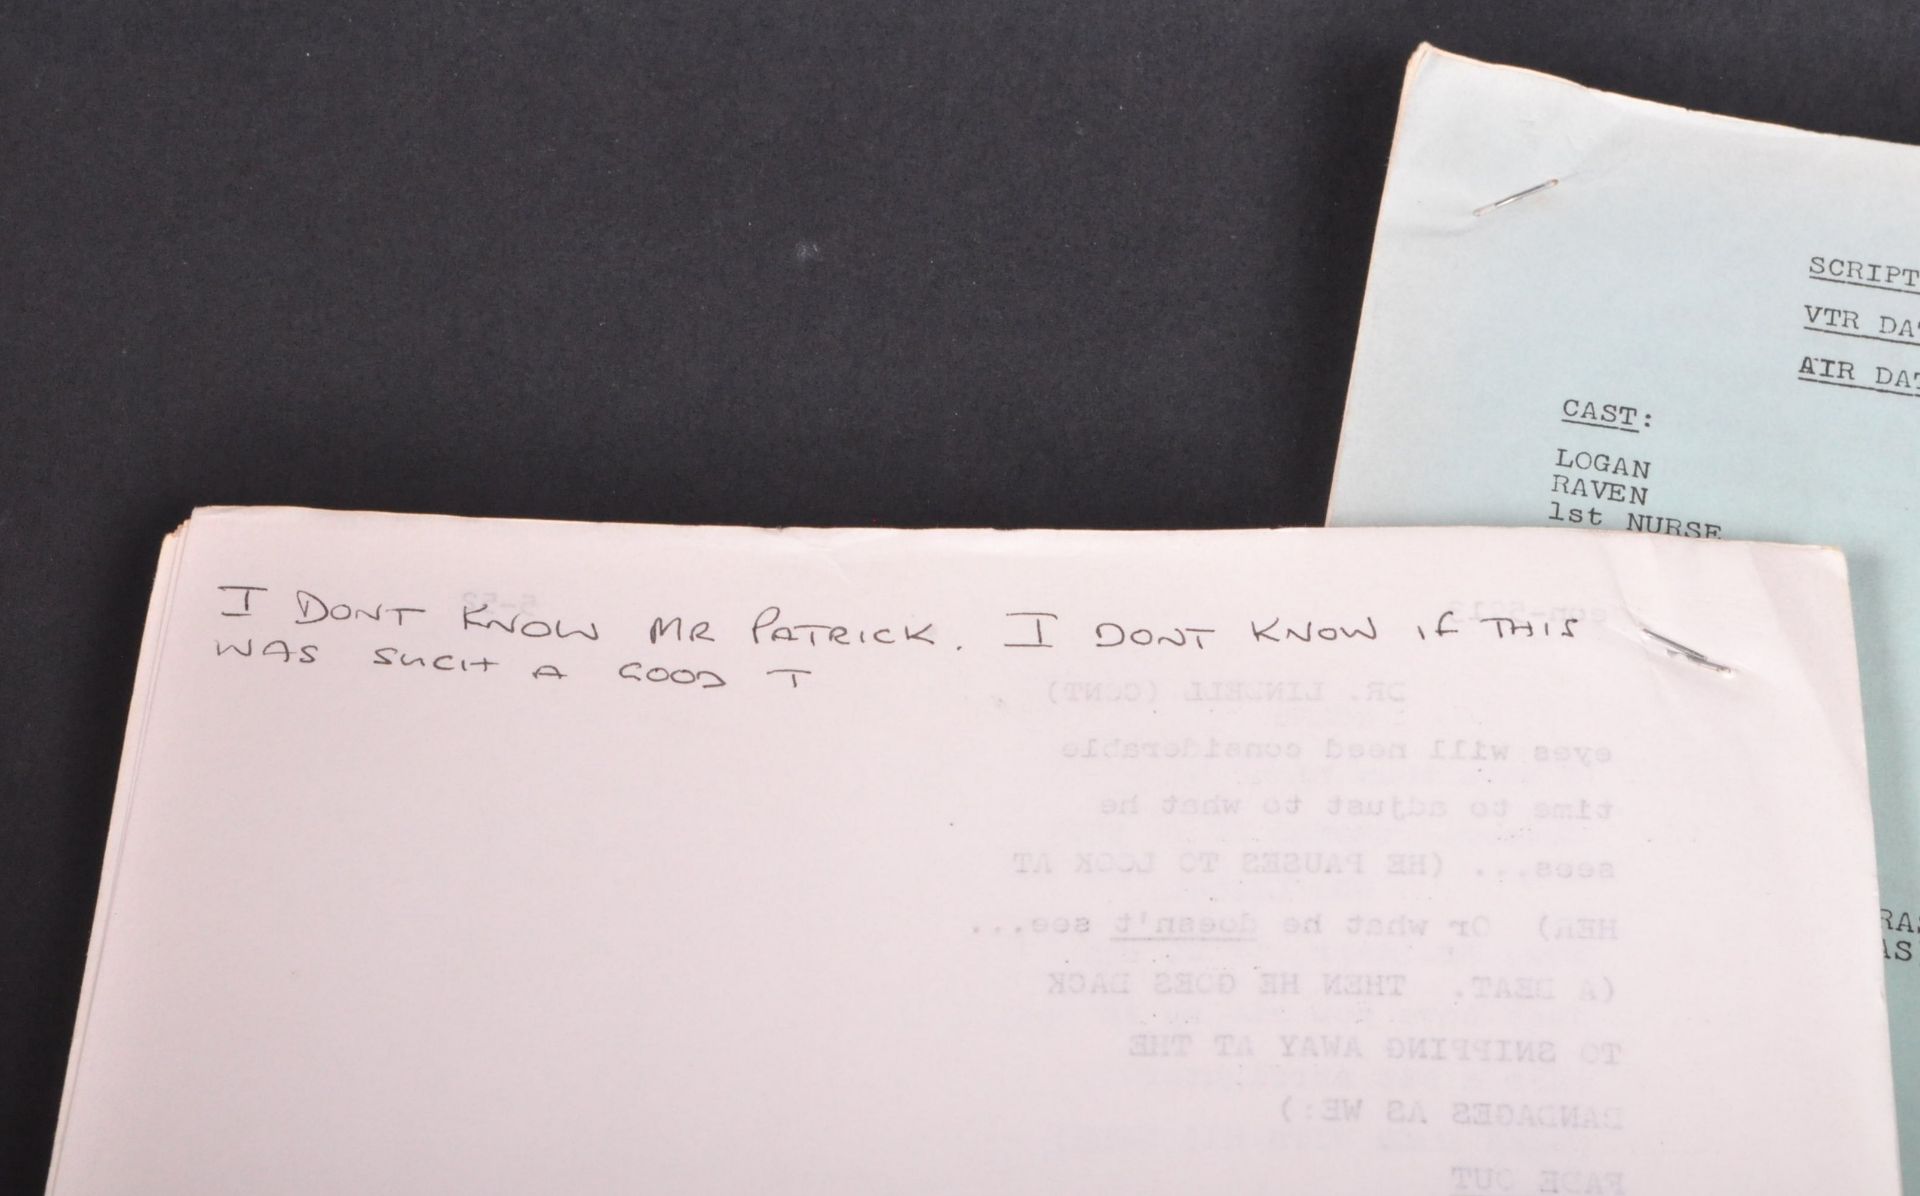 SCRIPT
VTR DA
AIR DAT
CAST:
LOGAN
RAVEN
1st NURSE
I DONT KNOW MR PATRICK. I DONT KNOW IF THIS
WAS SUCH A GOOD T
5-52
DR. LINDELL (CONT)
eyes will need considerable
time to adjust to what he
sees... (HE PAUSES TO LOOK AT
HER) Or what he doesn't see...
(A BEAT. THEN HE GOES BACK
TO SNIPPING AWAY AT THE
BANDAGES AS WE:)
FADE OUT
RAS
AS